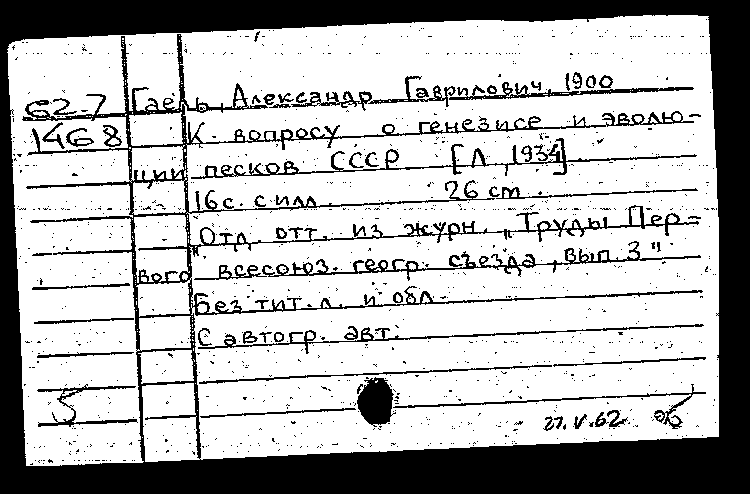 62-7 Гаель, Александр Гаврилович, 1900
1468 К вопросу о генезисе и эволю-
ции песков СССР [Л, 1934]
16 с. с илл. 26 cm.
"Отд. отт. из журн. „Труды Пер=
вого всесоюз. геогр. съезда, вып. 3"
Без тит. л. и обл.
С автогр. авт.
5
27.V.62